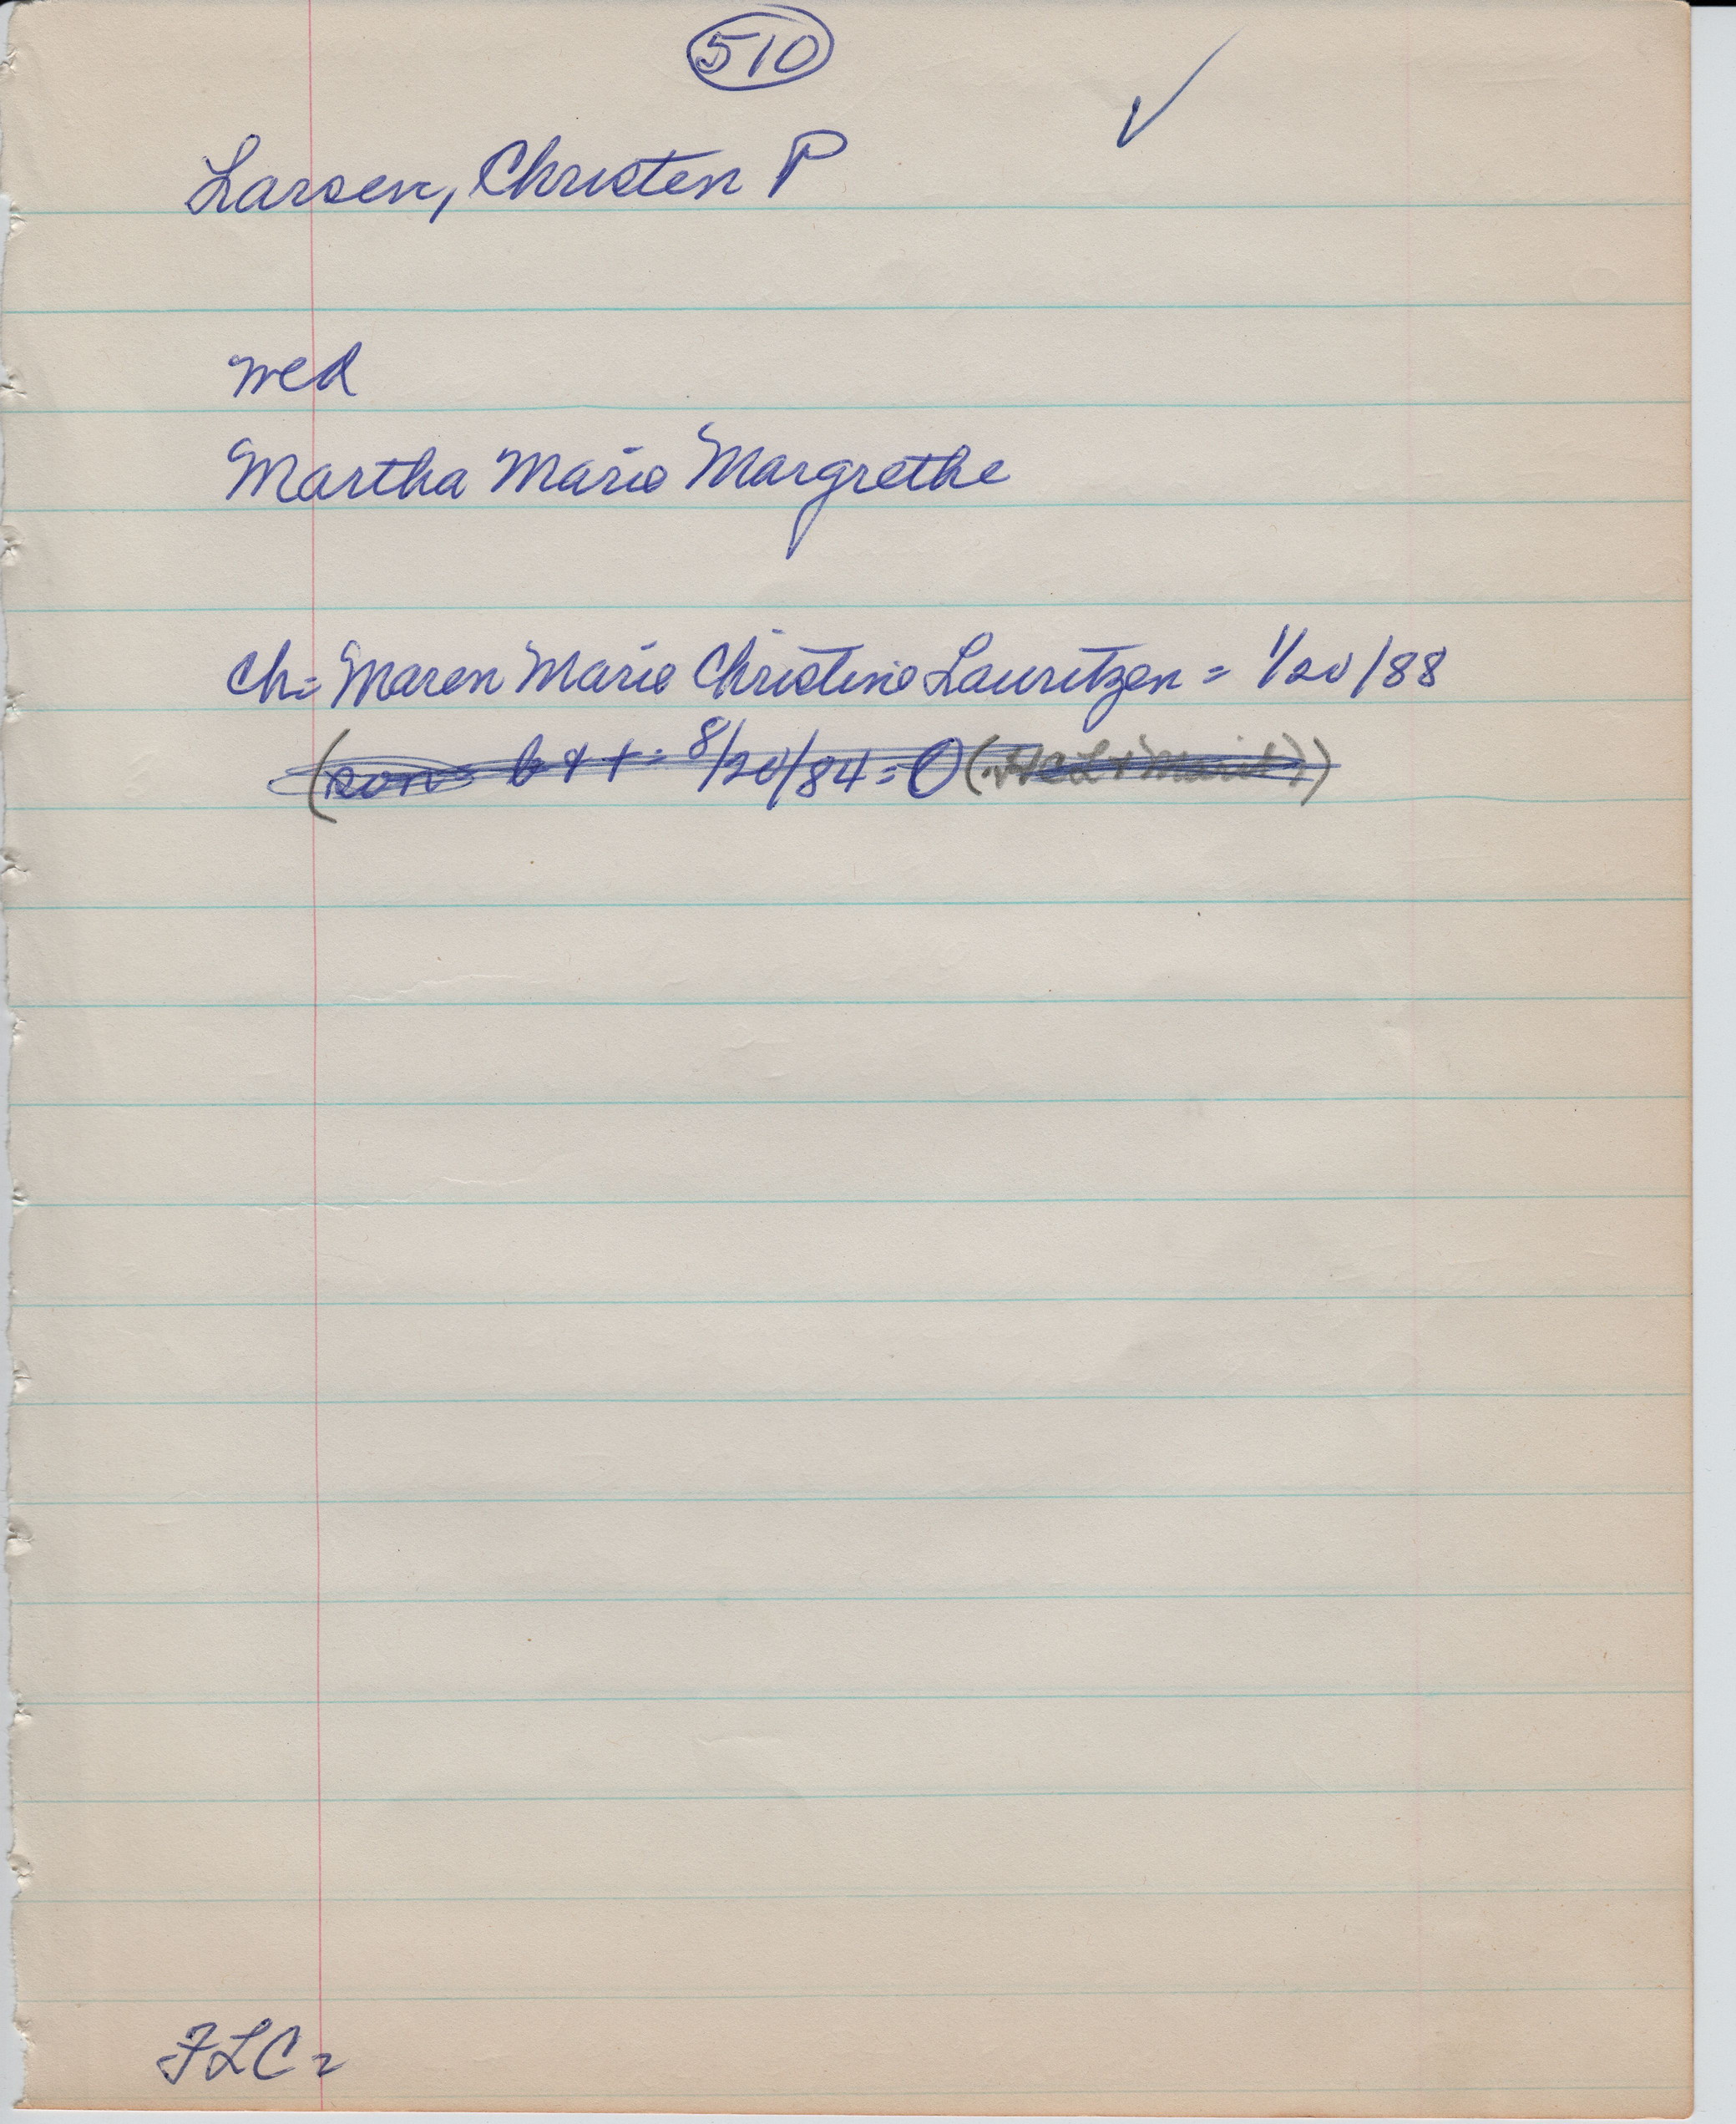 510
Larsen, Christen P
wed
Martha Marie Margrethe
ch = Maren Marie Christine Lauritzen = 1/20/88
(son = b & + = 8/20/84 = O (HCL + Marit))
FLC =